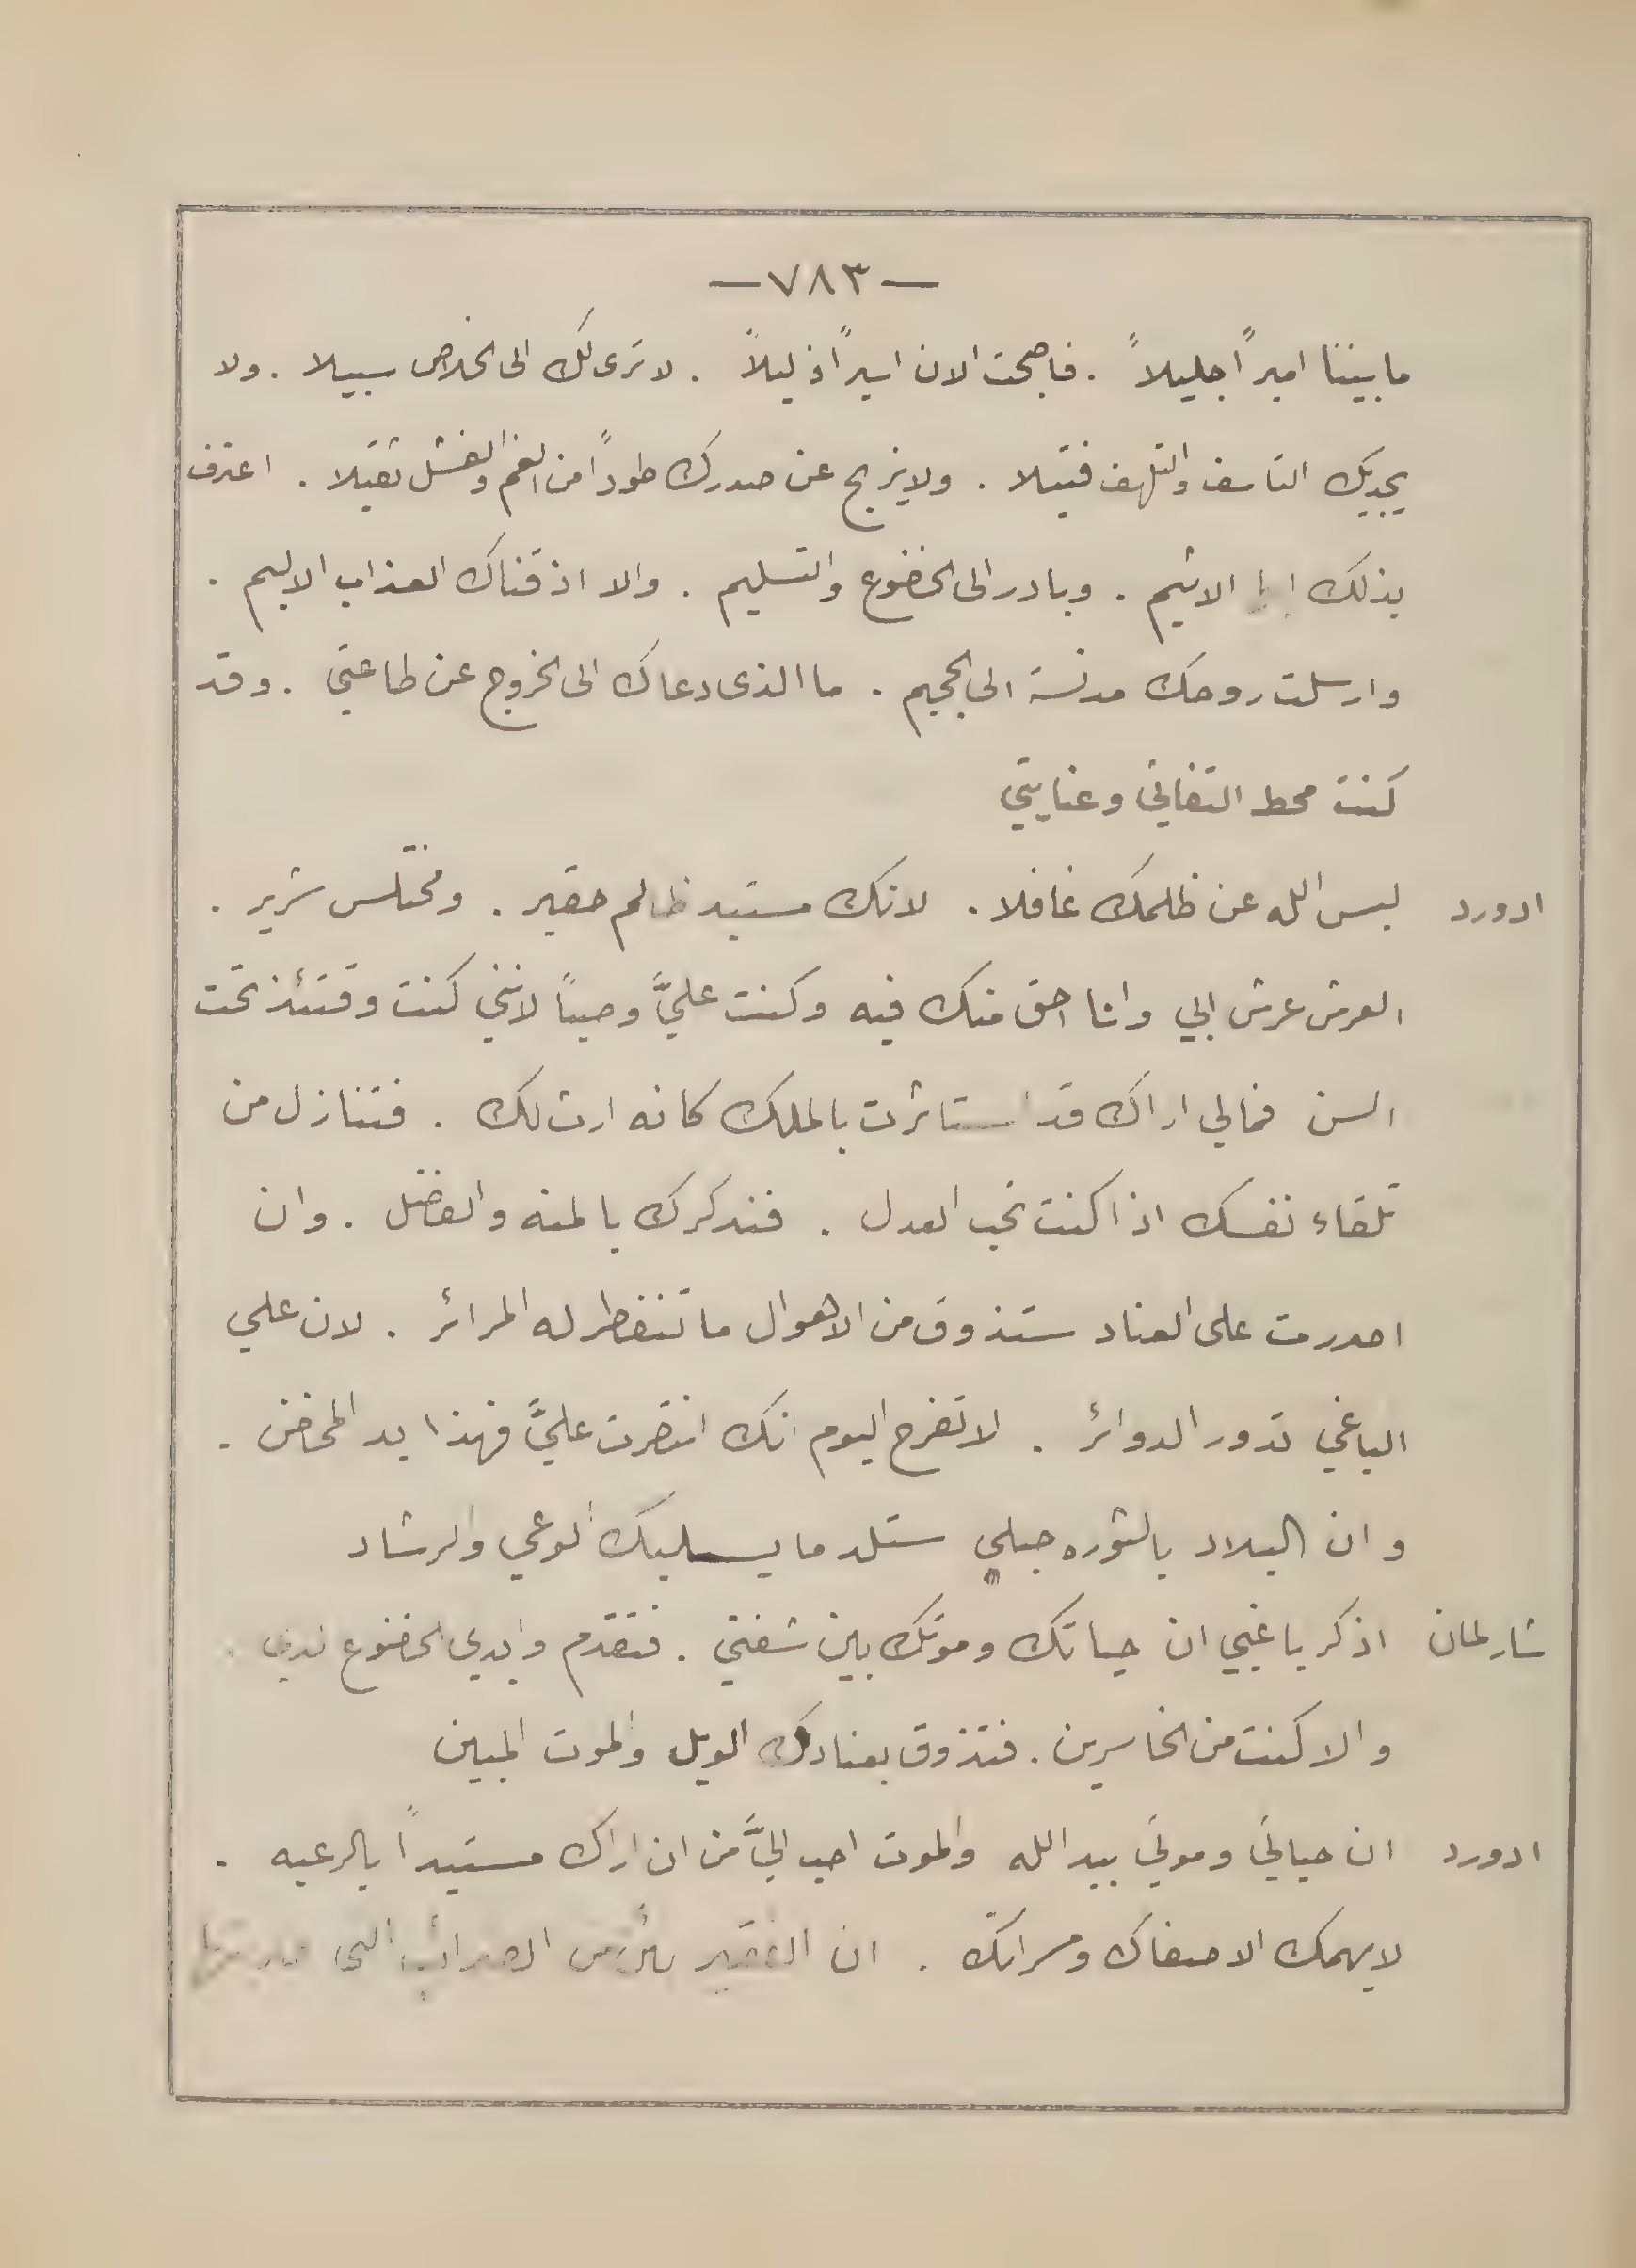 —٧٨٣—
ما بيننا اميرًا جليلاً . فاصبحت الان اسيرًا ذليلاً . لا ترى لك الى الخلاص سبيلا . ولا
يجديك التاسف والتلهف فتيلا . ولا يزيح عن صدرك طودًا من الغم والفشل ثقيلا . اعترف
بذلك ايها الاثيم . وبادر الى الخضوع والتسليم . والا اذقناك العذاب الاليم .
وارسلت روحك مدنسة الى الجحيم . ما الذى دعاك الى الخروج عن طاعتي . وقد
كنت محط التفاتي وعنايتي
ادورد ليس الله عن ظلمك غافلا . لانك مستبد ظالم حقير . ومختلس شرير .
العرش عرش ابي وانا احق منك فيه وكنت عليَّ وصياً لانني كنت وقتئذ تحت
السن فمالي اراك قد استاثرت بالملك كانه ارث لك . فتنازل من
تلقاء نفسك اذا كنت تحب العدل . فنذكرك بالمنه والفضل . وان
اصررت على العناد ستذوق من الاهوال ما تنفطر له المرائر . لان علي
الباغي تدور الدوائر . لا تفرح اليوم انك انتصرت عليَّ فهذا بدء المخاض .
وان البلاد بالثوره حبلي ستلد ما يسليك الوعي والرشاد
شارلمان اذكر يا غبي ان حياتك وموتك بين شفتي . فتقدم وابدي الخضوع لدي .
والا كنت من الخاسرين . فتذوق بعنادك الويل والموت المبين
ادورد ان حياتي وموتي بيد الله والموت احب اليَّ من ان اراك مستبداً بالرعيه .
لا يهمك الا صفاك ومسراتك . ان الفقير يئن من الضرائب التى